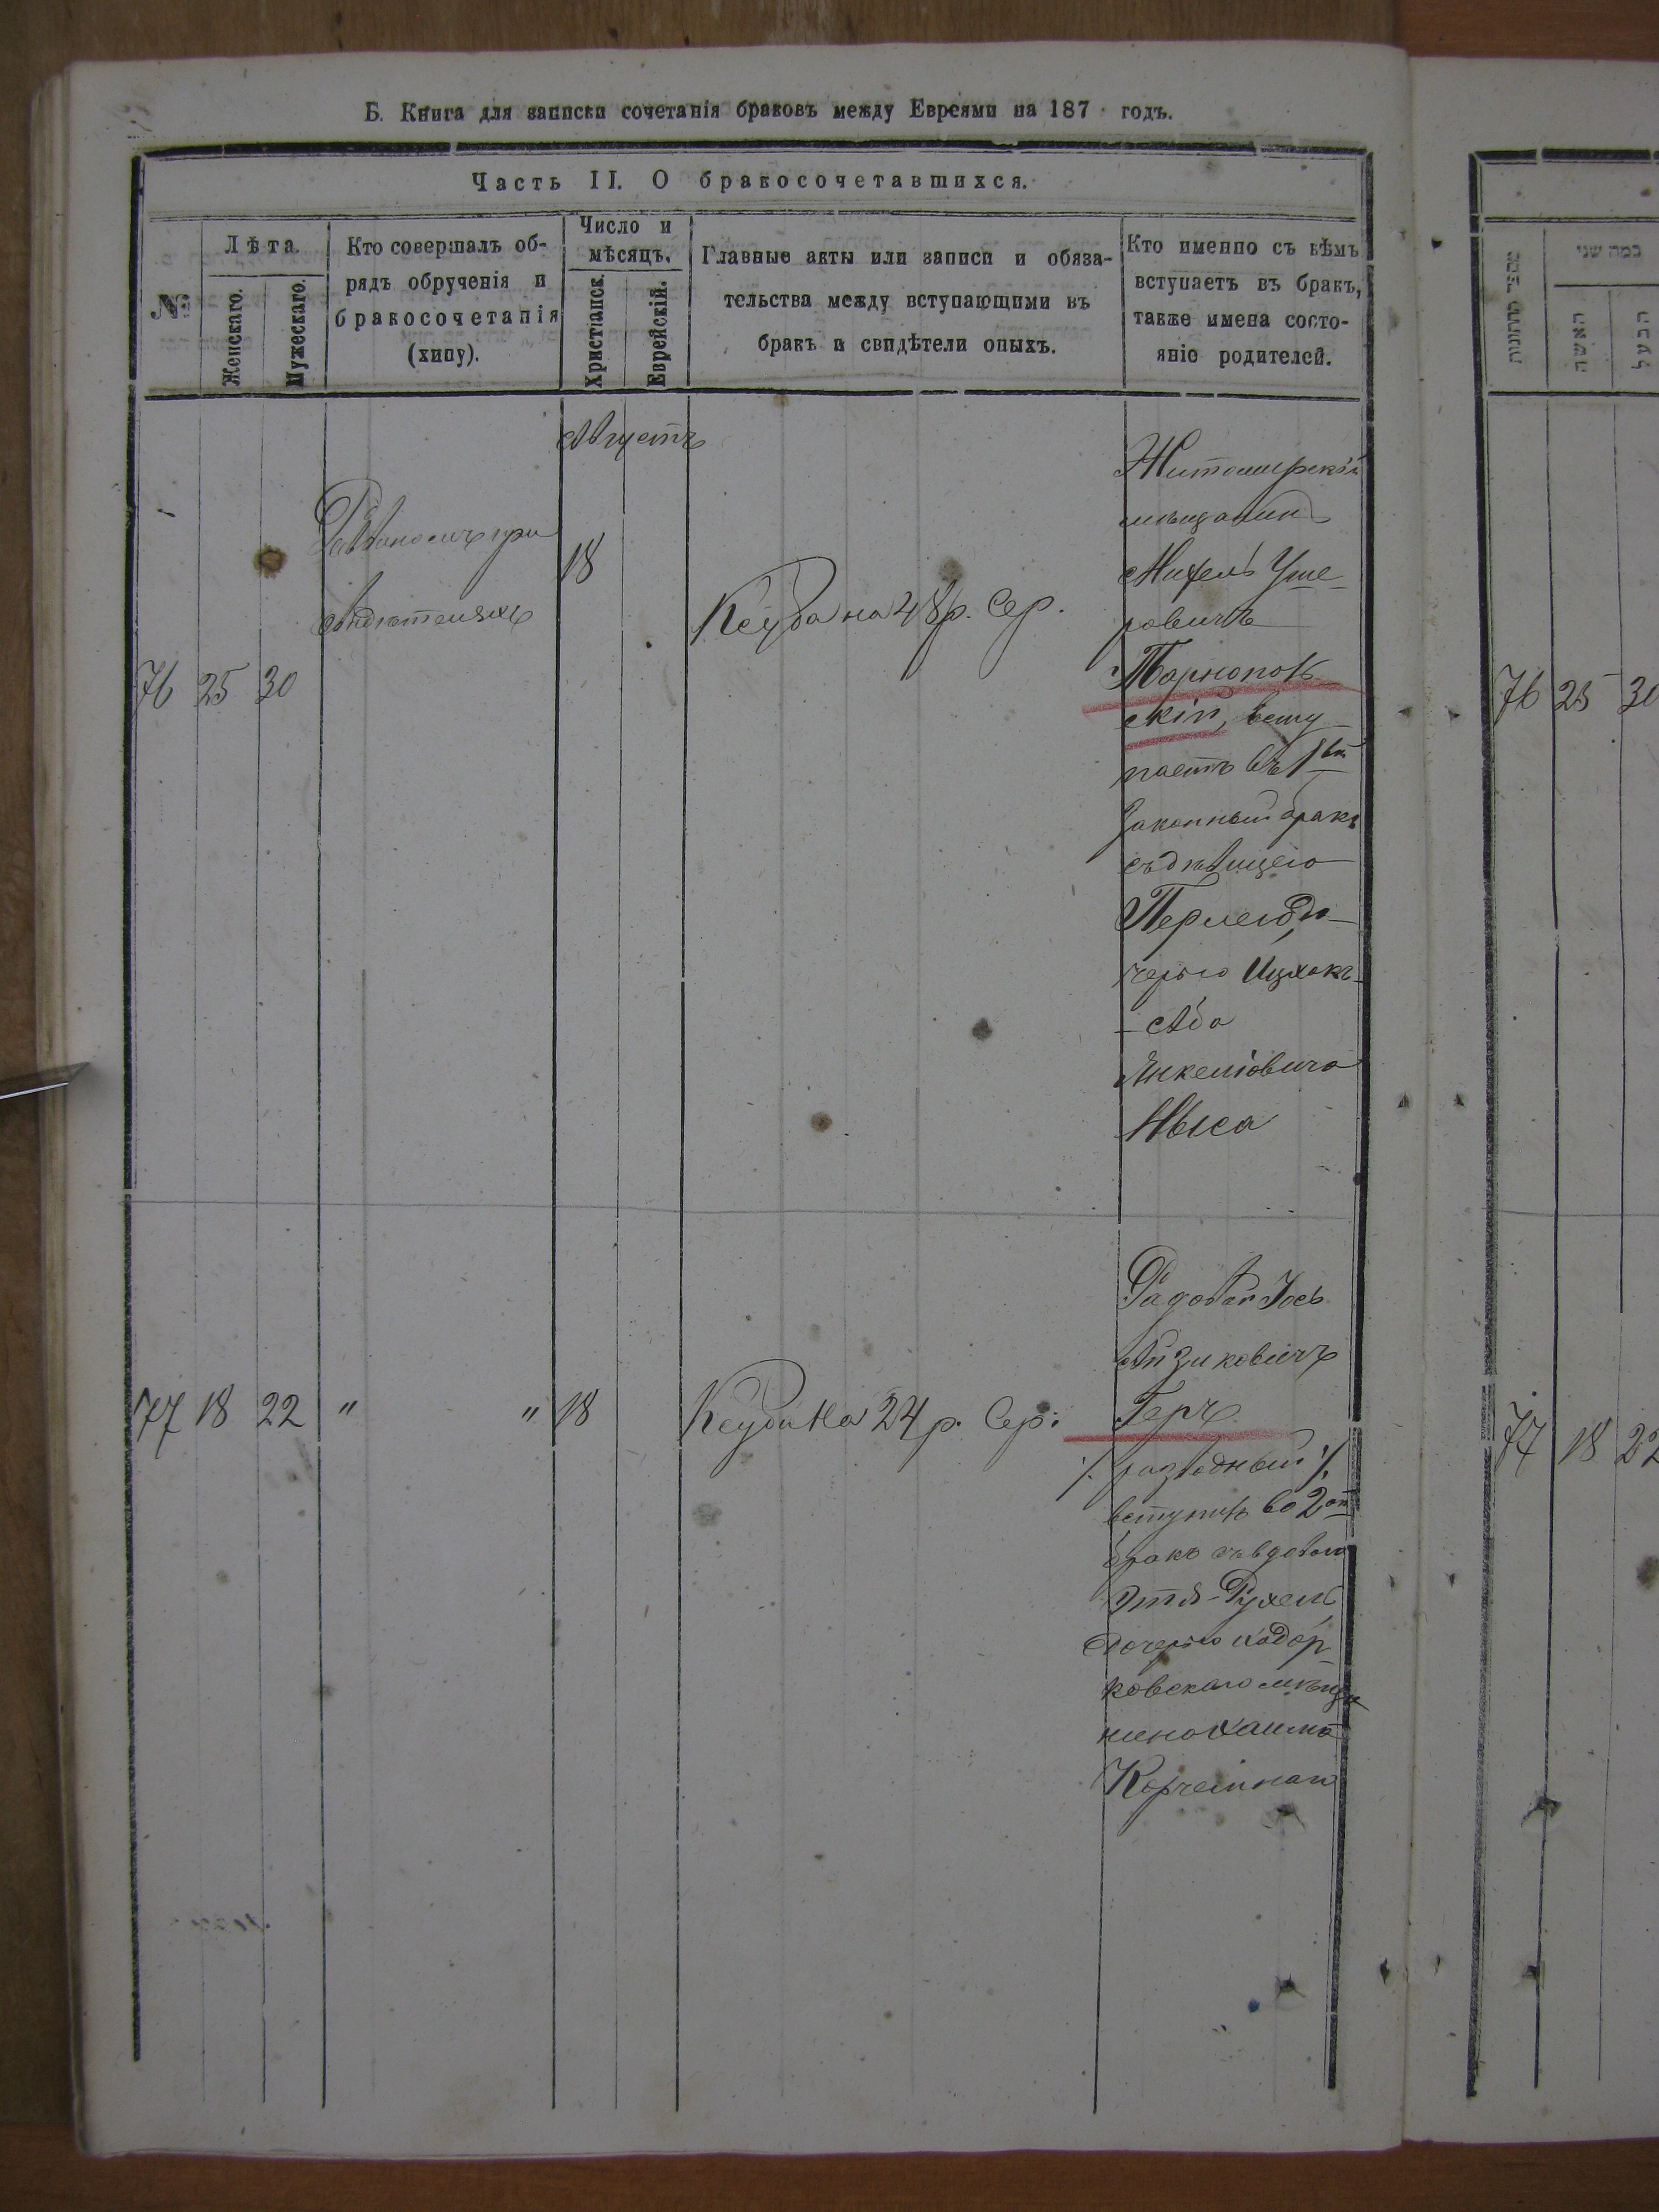 Б. Книга для записки сочетанія браковъ между Евреями на 187 годъ.
Часть II. О бракосочетавшихся.
№
Лѣта
Женскаго.
Мужескаго.
Кто совершалъ об-
рядъ обрученія и
бракосочетанія
(хипу).
Число и
мѣсяцъ.
Христіанск.
Еврейскій.
Главные акты или записи и обяза-
тельства между вступающими въ
бракъ и свидѣтели оныхъ.
Кто именно съ кѣмъ
вступаетъ въ бракъ,
также имена состо-
яніе родителей.
Августъ
76 25 30
Раввиномъ при
свидѣтеляхъ
18
Ксуба на 48 р. Сер.
Житомирскій
мѣщанинъ
Михель Уше-
ровичъ
Тарнополь
скій, всту-
паетъ въ 1вый
законный бракъ
съ дѣвицею
Перлею, до-
черью Ицхокъ-
-Аба
Янкеліовича
Ныса
77 18 22
" "
18
Ксуба на 24 р. Сер:
Рядовой Іось
Айзиковичъ
Геръ
/. разводный /.
вступилъ во 2ой
бракъ съ вдовою
Этя-Рухель
дочерью ходор-
ковскаго мѣща
нина Хаима
Корчемная
כמה שני
האשה
הבעל
76 25 30
77 18 22